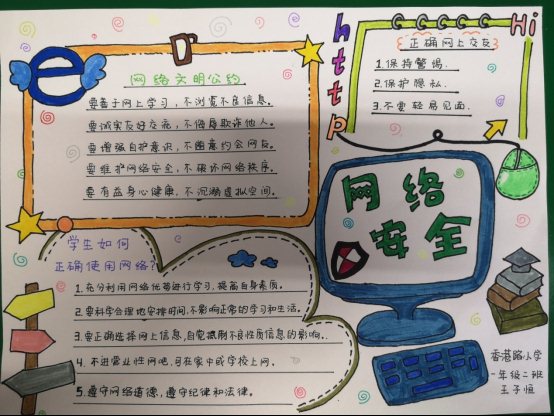 http
Hi
网络文明公约
要善于网上学习，不浏览不良信息。
要诚实友好交流，不侮辱欺诈他人。
要增强自护意识，不随意约会网友。
要维护网络安全，不破坏网络秩序。
要有益身心健康，不沉溺虚拟空间。
正确网上交友
1.保持警惕
2.保护隐私.
3.不要轻易见面.
网络
安全
学生如何
正确使用网络?
1.充分利用网络优势进行学习，提高自身素质。
2.要科学合理地安排时间,不影响正常的学习和生活。
3.要正确选择网上信息,自觉抵制不良性质信息的影响.
4.不进营业性网吧,可在家中或学校上网.
5.遵守网络道德，遵守纪律和法律。
香港路小学
一年级二班
王子恒